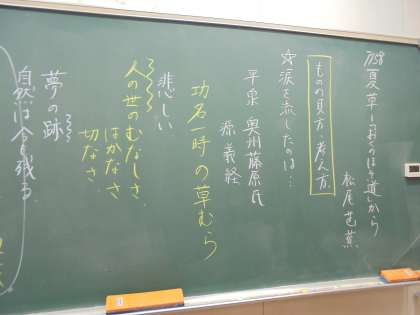 夏草―「おくのほそ道」から
松尾芭蕉
ものの見方 考え方
涙を流したのは…
平泉 奥州藤原氏
源義経
功名一時の草むら
悲しい
人の世のむなしさ
はかなさ
切なさ
夢の跡
自然は今も残る